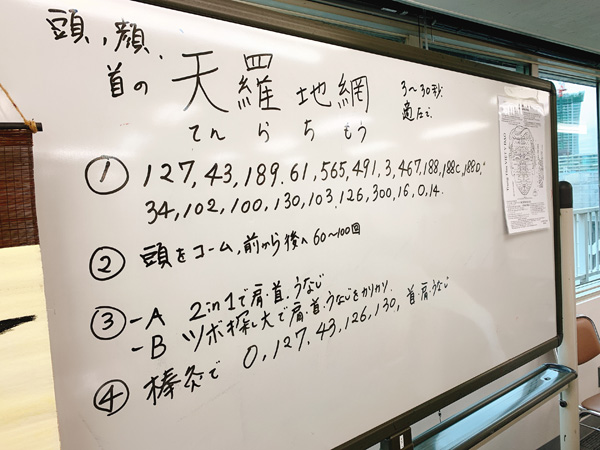 頭,顔,
首の 天羅地網
てんらちもう
3～30秒
適圧で
① 127, 43, 189. 61, 565, 491, 3, 467, 188, 188C, 188D,
34, 102, 100, 130, 103, 126, 300, 16, 0, 14.
② 頭をコーム,前から後へ 60～100回
③ -A 2in1で肩・首・うなじ
-B ツボ探し大で肩・首・うなじをカリカリ
④ 棒灸で 0, 127, 43, 126, 130, 首・肩・うなじ